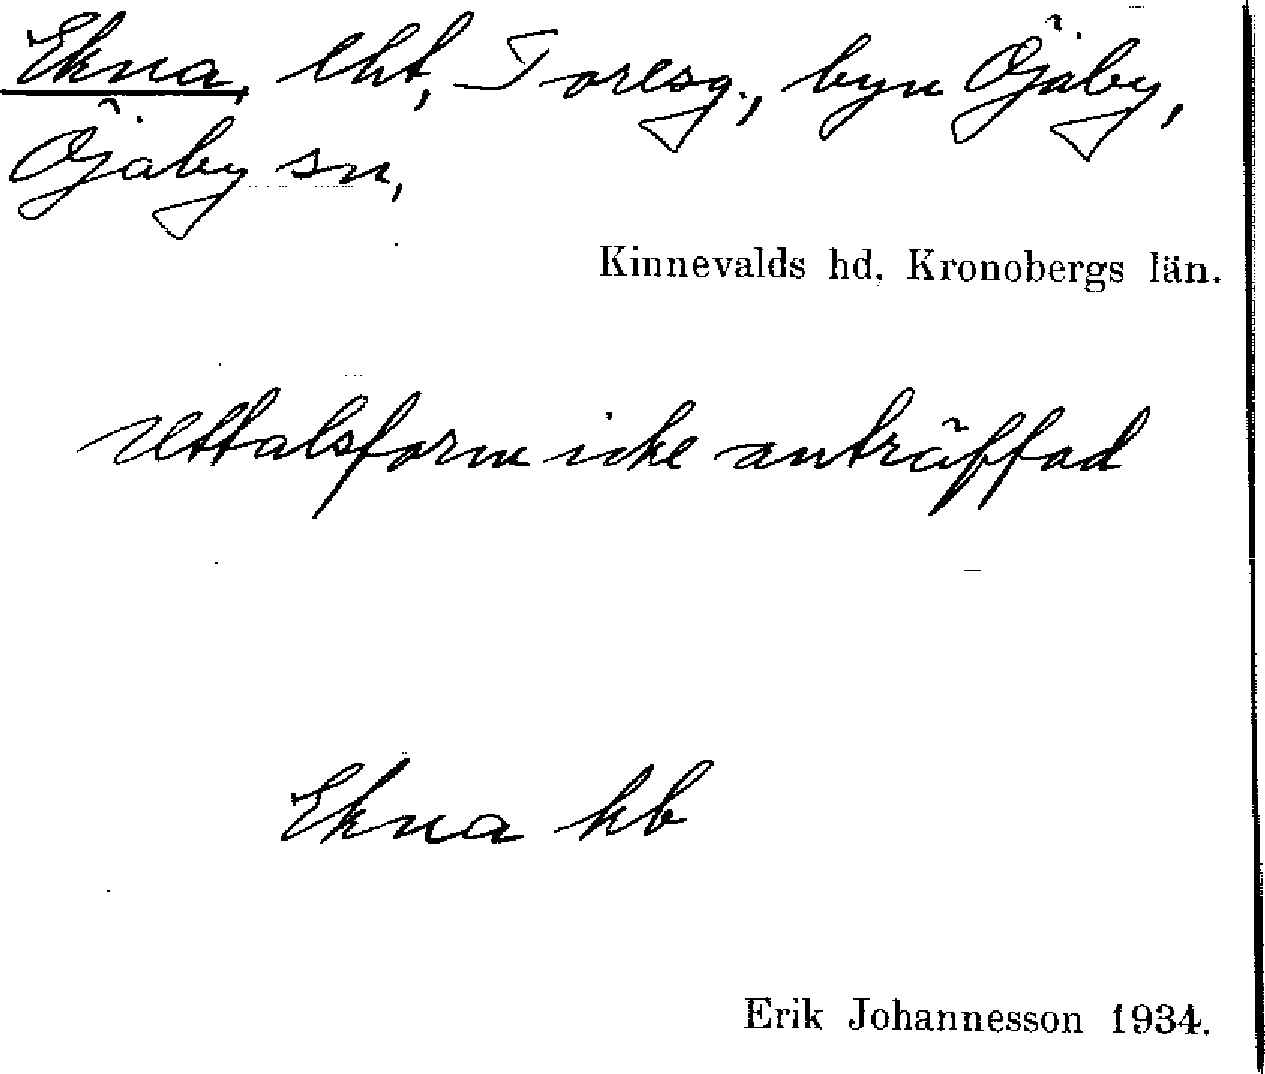 Ekna, lht, Toresg., byn Öjaby,
Öjaby sn,
Kinnevalds hd, Kronobergs län.
Uttalsform icke anträffad
Ekna kb
Erik Johannesson 1934.